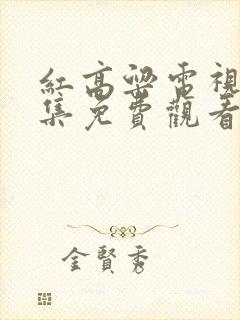 紅高粱電視
集免費觀看
金賢秀